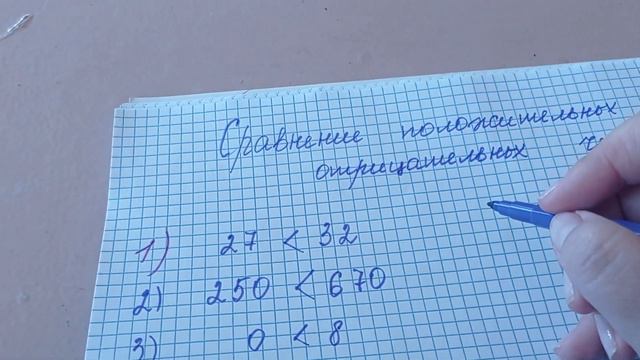 Сравнение положительных
отрицательных
1) 27 < 32
2) 250 < 670
3) 0 < 8